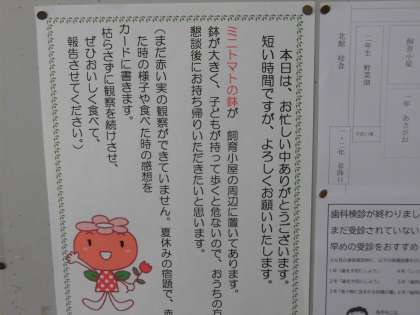 本日は、お忙しい中ありがとうございます。
短い時間ですが、よろしくお願いいたします。
ミニトマトの鉢が 飼育小屋の周辺に置いてあります。
鉢が大きく、子どもが持って歩くと危ないので、おうちの方
懇談後にお持ち帰りいただきたいと思います。
(まだ赤い実の観察ができていません。夏休みの宿題で、赤
た時の様子や食べた時の感想を
カードに書きます。
枯らさずに観察を続けさせ、
ぜひおいしく食べて、
報告させてください。)
飼育小屋
一年 あさがお
二年生 野菜畑
北館 校舎
一・二年
歯科検診が終わりまし
まだ受診されていない
早めの受診をおすすめ